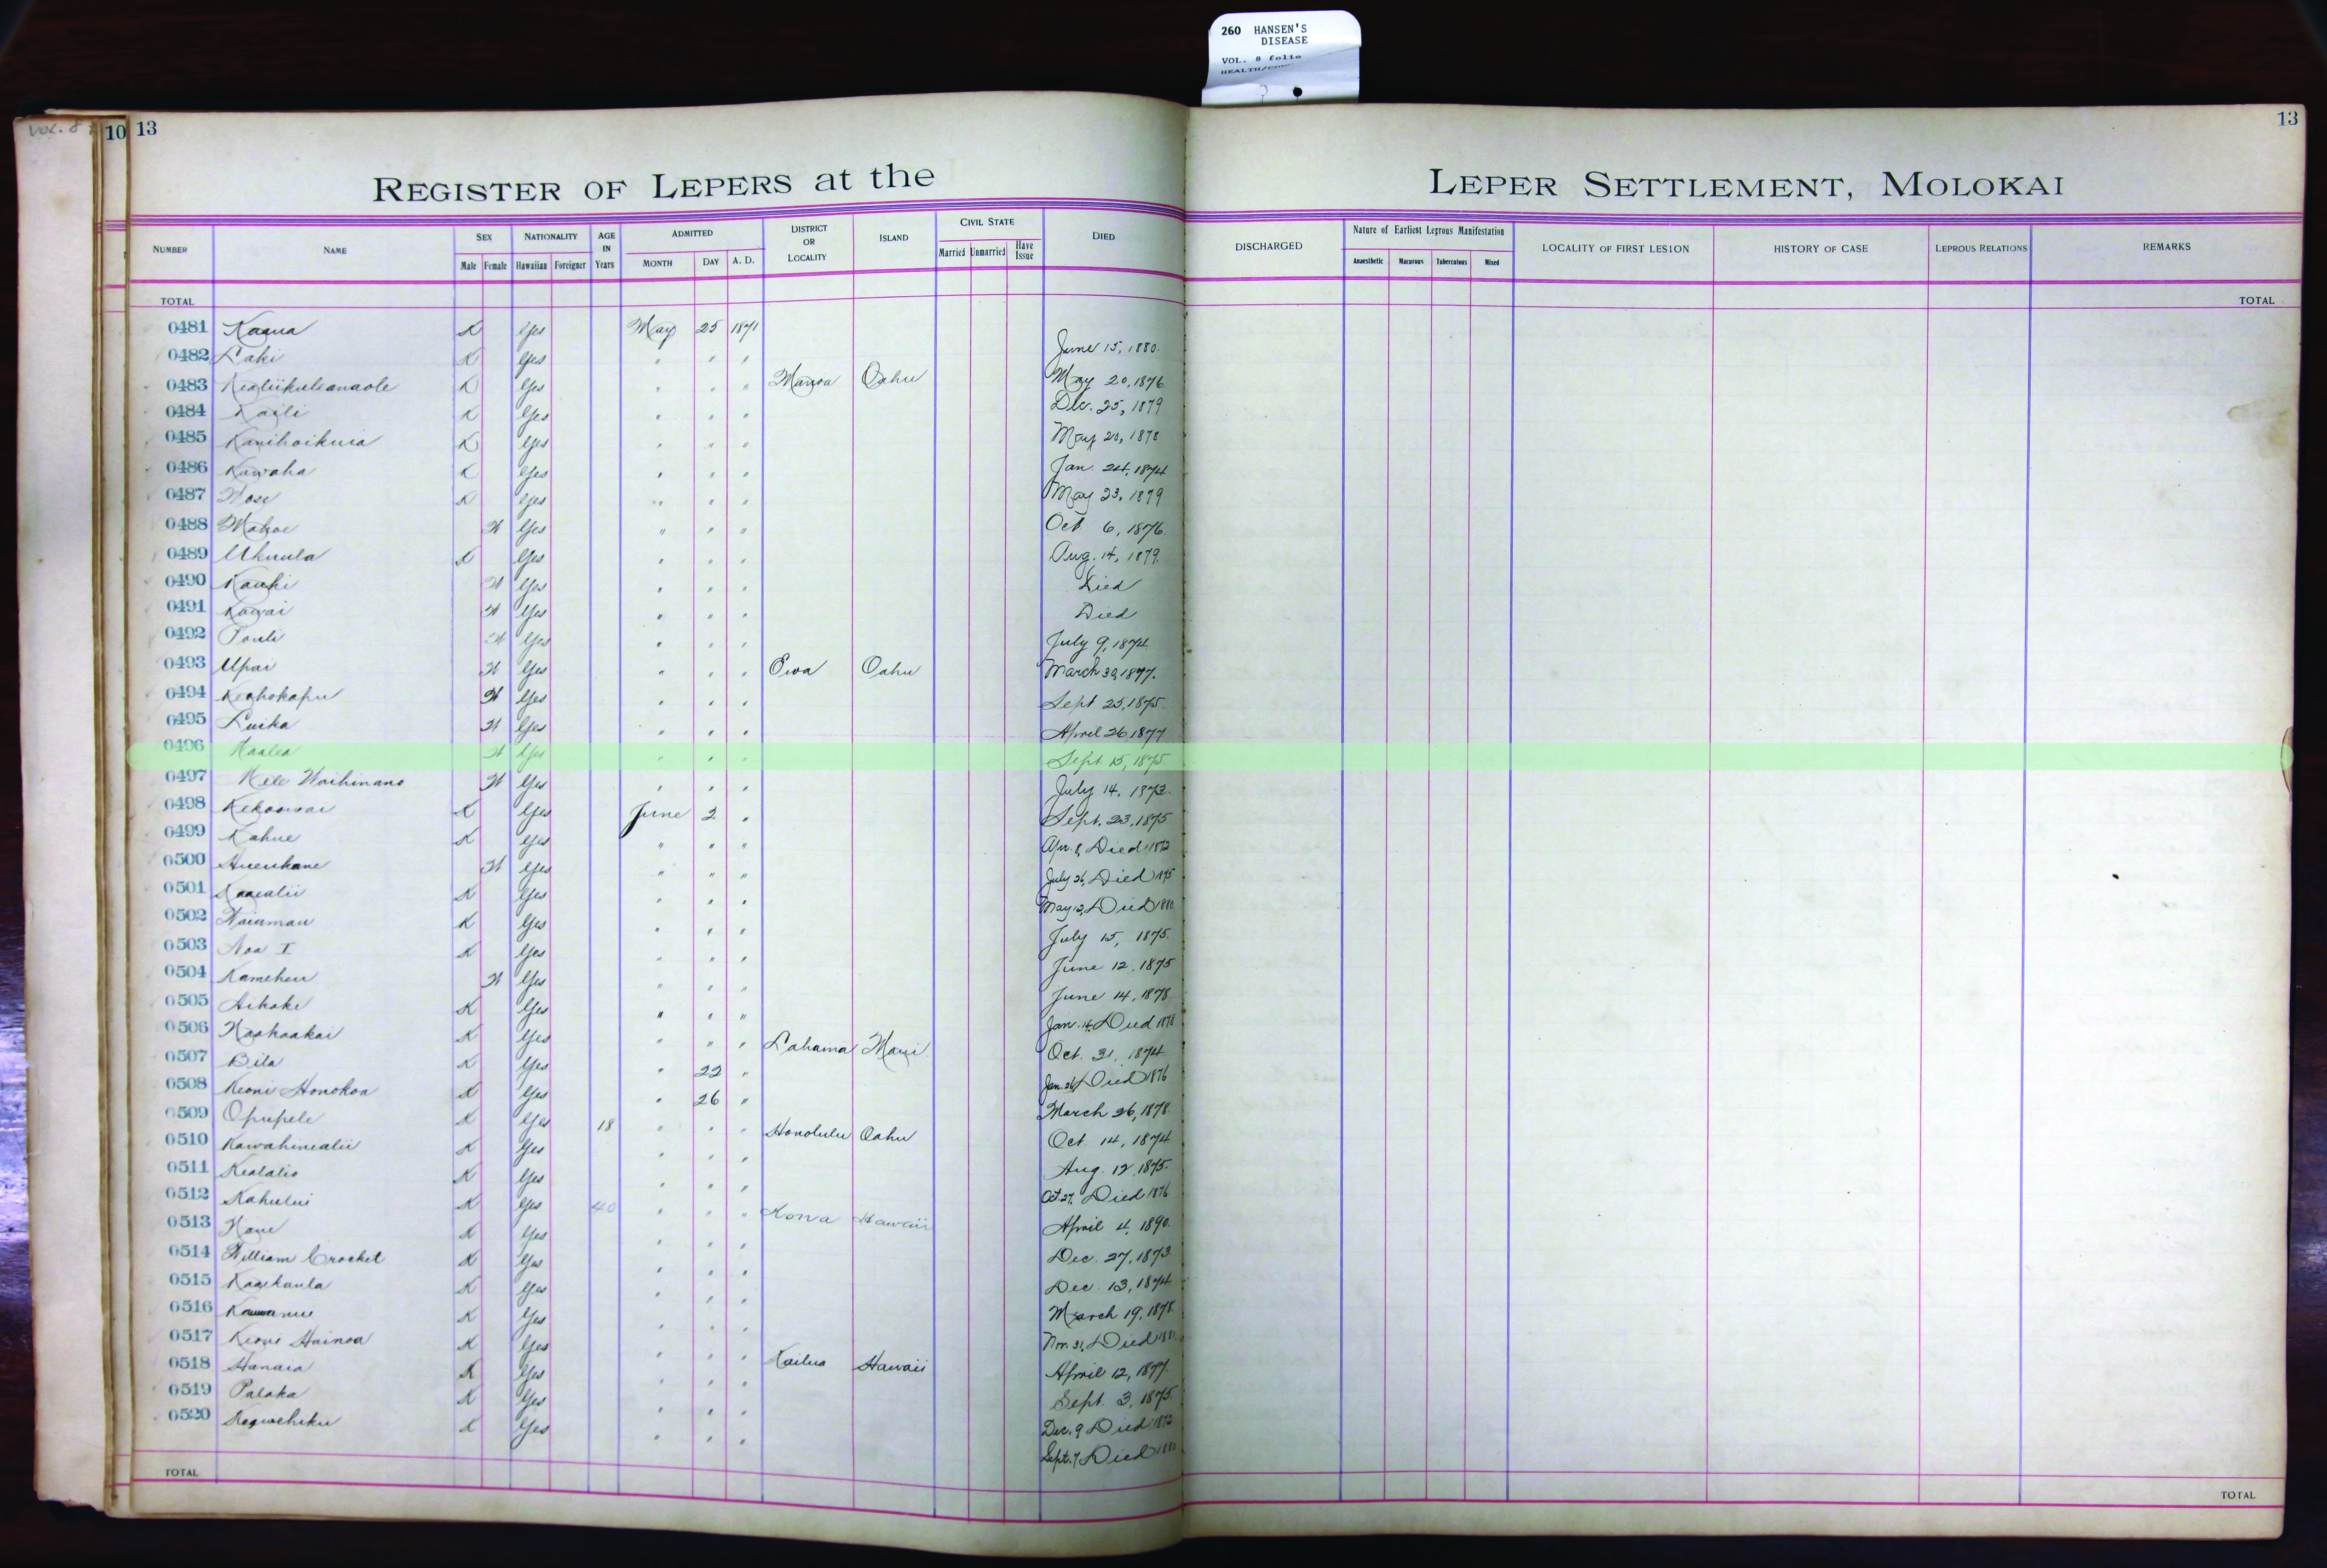 260 HANSEN'S
DISEASE
VOL. 8 folio
VOL. 8
10 13
13
REGISTER OF LEPERS at the LEPER SETTLEMENT, MOLOKAI
NUMBER NAME SEX NATIONALITY AGE IN Years ADMITTED DISTRICT OR LOCALITY ISLAND CIVIL STATE DIED DISCHARGED Nature of Earliest Leprous Manifestation LOCALITY OF FIRST LESION HISTORY OF CASE LEPROUS RELATIONS REMARKS
Male Female Hawaiian Foreigner MONTH DAY A. D. Married Unmarried Have Issue Anaesthetic Macurous Tuberculous Mixed
TOTAL TOTAL
0481 Kaaua K Yes May 25 1871
0482 Laki K Yes " " " June 15, 1880
0483 Kealiikuleanaole K Yes " " " Manoa Oahu May 20, 1876
0484 Kaili K Yes " " " Dec. 25, 1879
0485 Kanihoikuia K Yes " " " May 20, 1878
0486 Kawaha K Yes " " " Jan. 24, 1874
0487 K Yes " " " May 23, 1879
0488 Mahoe W Yes " " " Oct 6, 1876
0489 Ukuula K Yes " " " Aug. 14, 1879
0490 Kauhi W Yes " " " Died
0491 Kawai W Yes " " " Died
0492 Pouli W Yes " " " July 9, 1874
0493 Upai W Yes " " " Ewa Oahu March 30, 1877.
0494 Keahokapu W Yes " " " Sept 25, 1875
0495 Luika W Yes " " " April 26 1877
0496 Maalea W Yes " " " Sept 15, 1875
0497 Mele Waihinano W Yes " " " July 14, 1873
0498 Kekoowai K Yes June 2 " Sept. 23, 1875
0499 Kahue K Yes " " " Apr. 8, Died 1872
0500 Hueukane W Yes " " " July 26, Died 1875
0501 Kaaealii K Yes " " " May 12, Died 1880
0502 Waiamau K Yes " " " July 15, 1875
0503 Noa I K Yes " " " June 12, 1875
0504 Kameheu W Yes " " " June 14, 1878
0505 Aikake K Yes " " " Jan. 14, Died 1878
0506 Naahaakai K Yes " " " Lahaina Maui Oct. 31, 1874
0507 Bila K Yes " 22 " Jan. 26, Died 1876
0508 Keoni Honokoa K Yes " 26 " March 26, 1878
0509 Opupele K Yes 18 " " " Honolulu Oahu Oct 14, 1874
0510 Kawahinealii K Yes " " " Aug. 12, 1875
0511 Kealalio K Yes " " " Oct. 27, Died 1876
0512 Kahului K Yes 40 " " " Kona Hawaii April 4, 1890
0513 K Yes " " " Dec. 27, 1873
0514 William Crocket K Yes " " " Dec. 13, 1874
0515 Kaaikaula K Yes " " " March 19, 1878
0516 K Yes " " " Nov. 31, Died
0517 Keoni Hainoa K Yes " " " Kailua Hawaii April 12, 1877
0518 Hanaia K Yes " " " Sept. 3, 1875
0519 Palaka K Yes " " " Dec. 9 Died 1872
0520 K Yes " " " Sept. 7, Died
TOTAL TOTAL